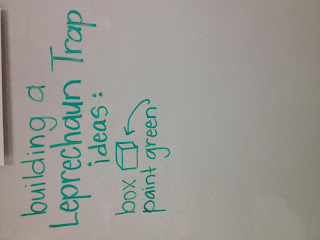 building a
Leprechaun Trap
ideas:
box
paint green